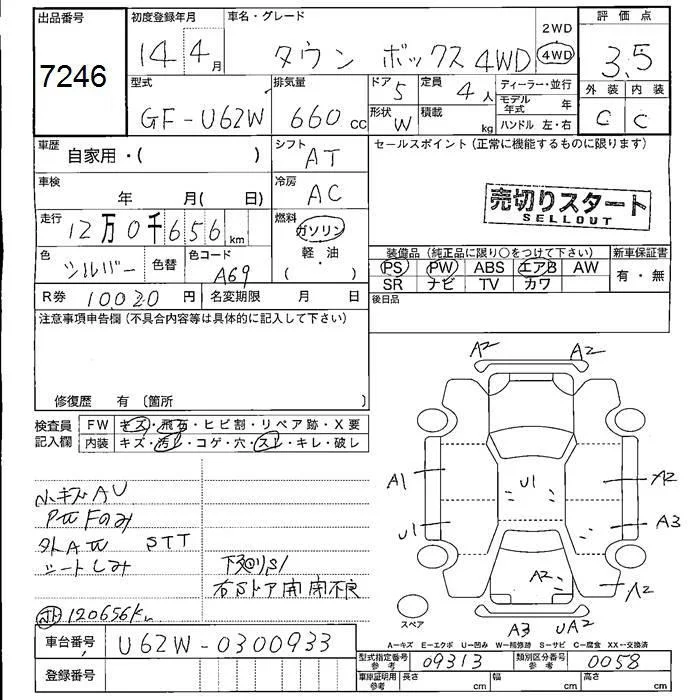 出品番号 7246
初度登録年月 14 4月
車名・グレード タウン ボックス 4WD
2WD
4WD
評価点 3.5
型式 GF-U62W
排気量 660 cc
ドア 5
定員 4人
ディーラー・並行
モデル年式 年
外装 内装
形状 W
積載 kg
ハンドル 左・右
C C
車歴 自家用・( )
シフト AT
セールスポイント(正常に機能するものに限ります)
車検 年 月( 日)
冷房 AC
売切りスタート
SELLOUT
走行 12万0千656 km
燃料 ガソリン
軽・油
( )
装備品(純正品に限り○をつけて下さい)
新車保証書
色 シルバー 色替
色コード A69
PS PW ABS エアB AW
有・無
SR ナビ TV カワ
R券 10020 円
名変期限 月 日
後日品
注意事項申告欄(不具合内容等は具体的に記入して下さい)
修復歴 有 〔箇所 〕
検査員記入欄
FW キズ・飛石・ヒビ割・リペア跡・X要
内装 キズ・汚れ・コゲ・穴・スレ・キレ・破レ
小キズAU
外AW STT
シートしみ
下廻りS1
右Sドア開閉不良
120656km
A2 A2
A1 U1 A2
U1 A3
A2 A2
スペア
A3 UA2
A=キズ E=エクボ U=凹み W=補修跡 S=サビ C=腐食 XX=交換済
車台番号 U62W-0300933
型式指定番号 参考 09313
類別区分番号 参考 0058
登録番号
車庫証明用 参考 長さ cm 幅 cm 高さ cm